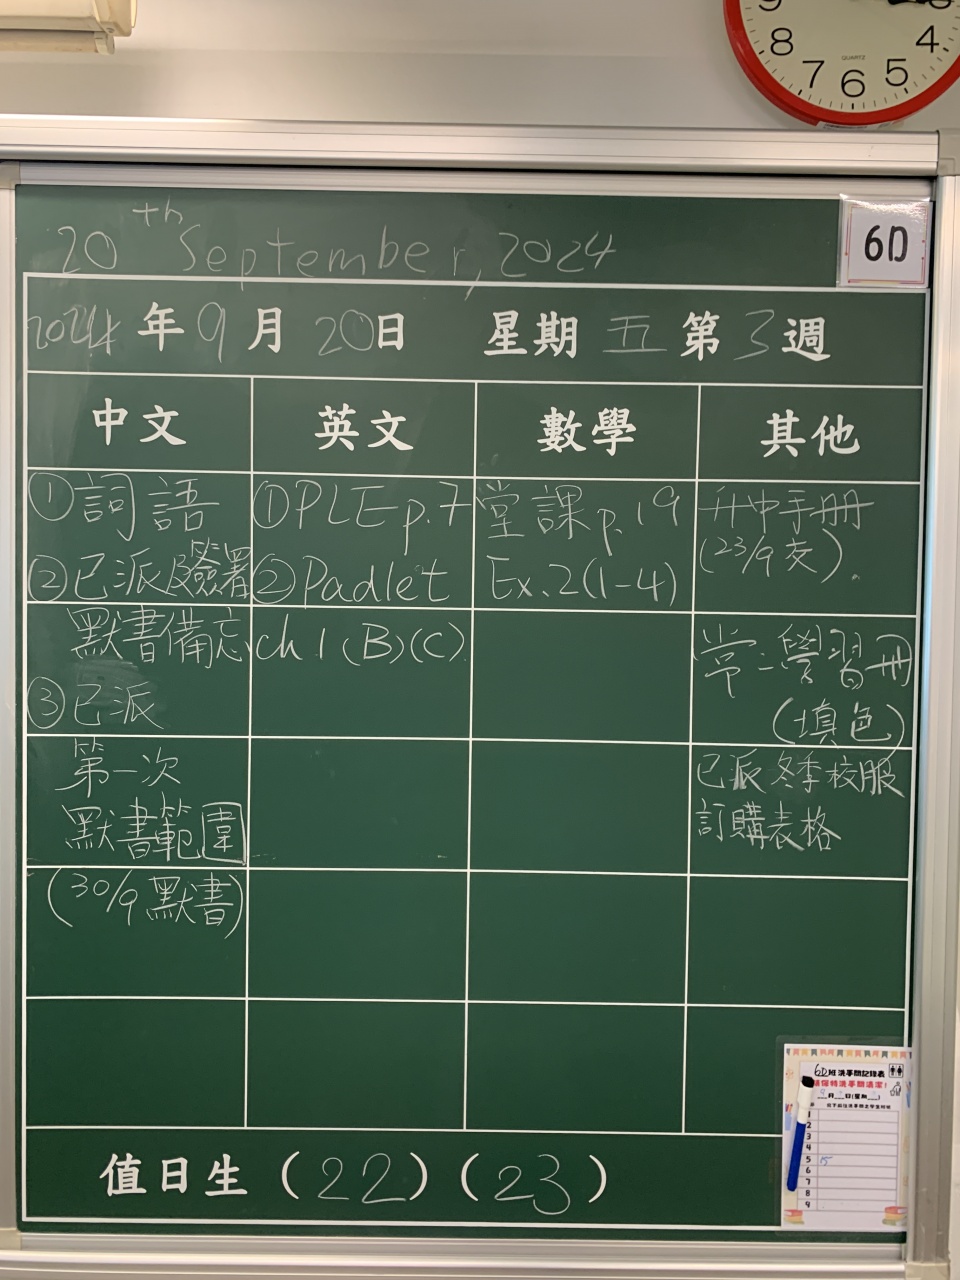 9
4
8
QUARTZ
7 6 5
20th September, 2024
6D
2024年9月20日 星期五第3週
中文 英文 數學 其他
①詞語
②已派及簽署
默書備忘
③已派
第一次
默書範圍
(30/9默書)
①PLE p.7
②Padlet
ch 1 (B)(C)
堂課p.19
Ex.2(1-4)
升中手冊
(23/9交).
常=學習冊
(填色)
已派冬季校服
訂購表格
6D班洗手間記錄表
請保持洗手間清潔!
月 日(星期 )
1
2
3
4
5 15
6
7
8
9
值日生(22)(23)